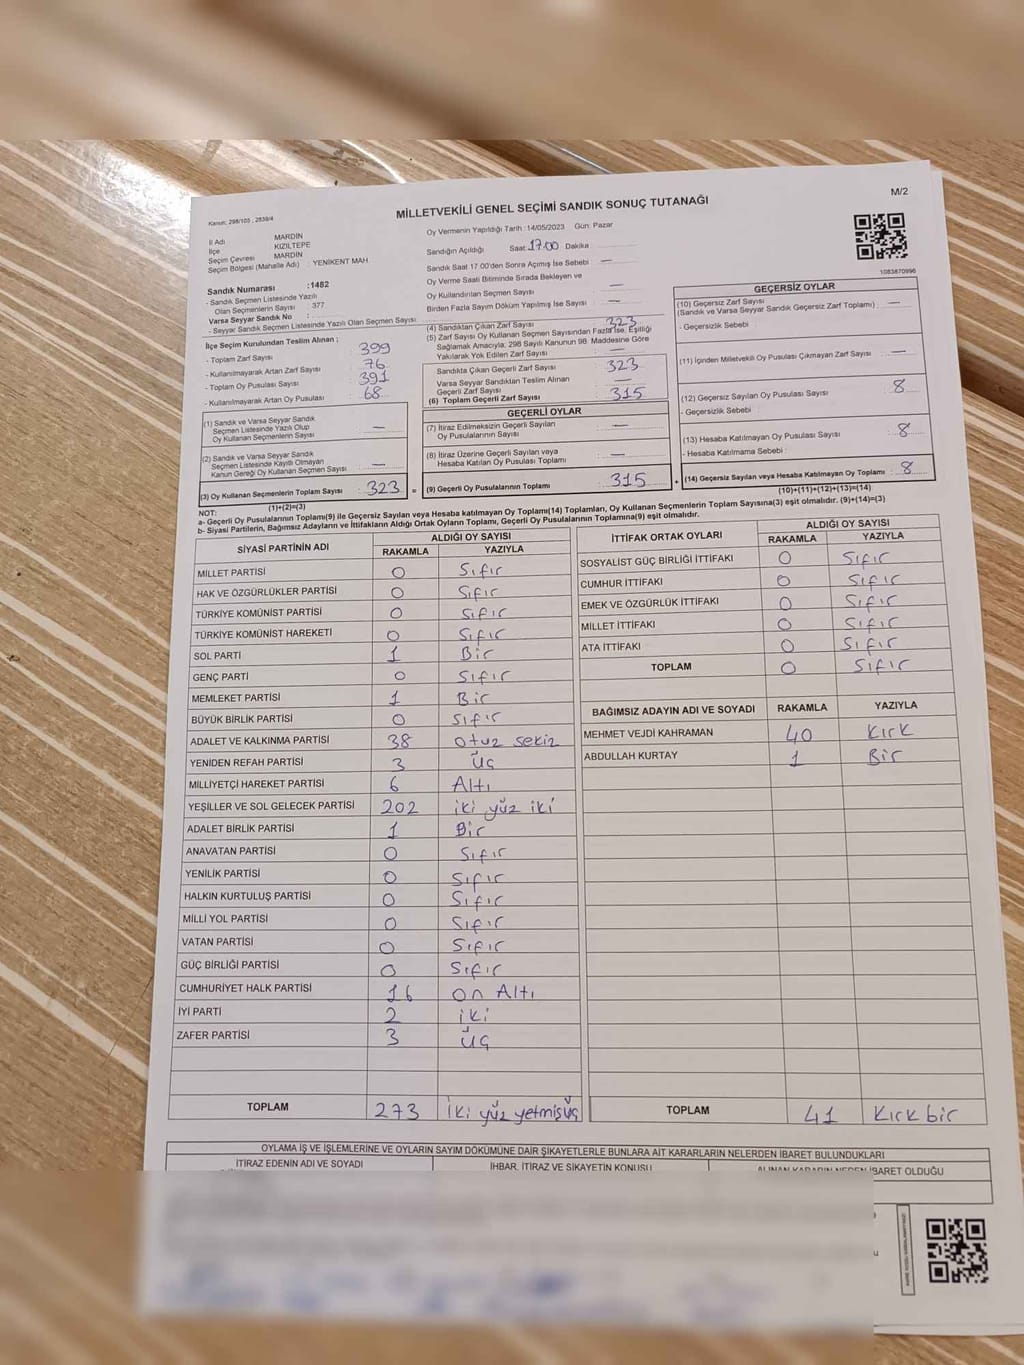 MİLLETVEKİLİ GENEL SEÇİMİ SANDIK SONUÇ TUTANAĞI
M/2
Kanun: 298/105 , 2839/4
İl Adı : MARDİN
İlçe : KIZILTEPE
Seçim Çevresi : MARDİN
Seçim Bölgesi (Mahalle Adı) : YENİKENT MAH
Sandık Numarası :1482
- Sandık Seçmen Listesinde Yazılı
Olan Seçmenlerin Sayısı : 377
Varsa Seyyar Sandık No :
- Seyyar Sandık Seçmen Listesinde Yazılı Olan Seçmen Sayısı
İlçe Seçim Kurulundan Teslim Alınan ;
- Toplam Zarf Sayısı : 399
- Kullanılmayarak Artan Zarf Sayısı : 76
- Toplam Oy Pusulası Sayısı : 391
- Kullanılmayarak Artan Oy Pusulası : 68
(1) Sandık ve Varsa Seyyar Sandık
Seçmen Listesinde Yazılı Olup
Oy Kullanan Seçmenlerin Sayısı : —
(2) Sandık ve Varsa Seyyar Sandık
Seçmen Listesinde Kayıtlı Olmayan
Kanun Gereği Oy Kullanan Seçmen Sayısı : —
(3) Oy Kullanan Seçmenlerin Toplam Sayısı : 323
(1)+(2)=(3)
Oy Vermenin Yapıldığı Tarih :14/05/2023 Gün: Pazar
Sandığın Açıldığı Saat 17:00 Dakika
Sandık Saat 17.00'den Sonra Açılmış İse Sebebi : —
Oy Verme Saati Bitiminde Sırada Bekleyen ve
Oy Kullandırılan Seçmen Sayısı : —
Birden Fazla Sayım Döküm Yapılmış İse Sayısı : —
(4) Sandıktan Çıkan Zarf Sayısı : 323
(5) Zarf Sayısı Oy Kullanan Seçmen Sayısından Fazla İse, Eşitliği
Sağlamak Amacıyla; 298 Sayılı Kanunun 98. Maddesine Göre
Yakılarak Yok Edilen Zarf Sayısı : —
Sandıkta Çıkan Geçerli Zarf Sayısı : 323
Varsa Seyyar Sandıktan Teslim Alınan
Geçerli Zarf Sayısı : —
(6) Toplam Geçerli Zarf Sayısı : 315
GEÇERLİ OYLAR
(7) İtiraz Edilmeksizin Geçerli Sayılan
Oy Pusulalarının Sayısı : —
(8) İtiraz Üzerine Geçerli Sayılan veya
Hesaba Katılan Oy Pusulası Toplamı : —
= (9) Geçerli Oy Pusulalarının Toplamı : 315
1083870996
GEÇERSİZ OYLAR
(10) Geçersiz Zarf Sayısı
(Sandık ve Varsa Seyyar Sandık Geçersiz Zarf Toplamı) : —
- Geçersizlik Sebebi :
(11) İçinden Milletvekili Oy Pusulası Çıkmayan Zarf Sayısı : —
(12) Geçersiz Sayılan Oy Pusulası Sayısı : 8
- Geçersizlik Sebebi :
(13) Hesaba Katılmayan Oy Pusulası Sayısı : 8
- Hesaba Katılmama Sebebi :
+ (14) Geçersiz Sayılan veya Hesaba Katılmayan Oy Toplamı : 8
(10)+(11)+(12)+(13)=(14)
NOT:
a- Geçerli Oy Pusulalarının Toplamı(9) ile Geçersiz Sayılan veya Hesaba Katılmayan Oy Toplamı(14) Toplamları, Oy Kullanan Seçmenlerin Toplam Sayısına(3) eşit olmalıdır. (9)+(14)=(3)
b- Siyasi Partilerin, Bağımsız Adayların ve İttifakların Aldığı Ortak Oyların Toplamı, Geçerli Oy Pusulalarının Toplamına(9) eşit olmalıdır.
SİYASİ PARTİNİN ADI ALDIĞI OY SAYISI
RAKAMLA YAZIYLA
MİLLET PARTİSİ 0 Sıfır
HAK VE ÖZGÜRLÜKLER PARTİSİ 0 Sıfır
TÜRKİYE KOMÜNİST PARTİSİ 0 Sıfır
TÜRKİYE KOMÜNİST HAREKETİ 0 Sıfır
SOL PARTİ 1 Bir
GENÇ PARTİ 0 Sıfır
MEMLEKET PARTİSİ 1 Bir
BÜYÜK BİRLİK PARTİSİ 0 Sıfır
ADALET VE KALKINMA PARTİSİ 38 otuz sekiz
YENİDEN REFAH PARTİSİ 3 üç
MİLLİYETÇİ HAREKET PARTİSİ 6 Altı
YEŞİLLER VE SOL GELECEK PARTİSİ 202 iki yüz iki
ADALET BİRLİK PARTİSİ 1 Bir
ANAVATAN PARTİSİ 0 Sıfır
YENİLİK PARTİSİ 0 Sıfır
HALKIN KURTULUŞ PARTİSİ 0 Sıfır
MİLLİ YOL PARTİSİ 0 Sıfır
VATAN PARTİSİ 0 Sıfır
GÜÇ BİRLİĞİ PARTİSİ 0 Sıfır
CUMHURİYET HALK PARTİSİ 16 on Altı
İYİ PARTİ 2 iki
ZAFER PARTİSİ 3 üç
TOPLAM 273 iki yüz yetmişüç
İTTİFAK ORTAK OYLARI ALDIĞI OY SAYISI
RAKAMLA YAZIYLA
SOSYALİST GÜÇ BİRLİĞİ İTTİFAKI 0 Sıfır
CUMHUR İTTİFAKI 0 Sıfır
EMEK VE ÖZGÜRLÜK İTTİFAKI 0 Sıfır
MİLLET İTTİFAKI 0 Sıfır
ATA İTTİFAKI 0 Sıfır
TOPLAM 0 Sıfır
BAĞIMSIZ ADAYIN ADI VE SOYADI RAKAMLA YAZIYLA
MEHMET VEJDİ KAHRAMAN 40 Kırk
ABDULLAH KURTAY 1 Bir
TOPLAM 41 Kırk bir
OYLAMA İŞ VE İŞLEMLERİNE VE OYLARIN SAYIM DÖKÜMÜNE DAİR ŞİKAYETLERLE BUNLARA AİT KARARLARIN NELERDEN İBARET BULUNDUKLARI
İTİRAZ EDENİN ADI VE SOYADI İHBAR, İTİRAZ VE ŞİKAYETİN KONUSU ALINAN KARARIN NEDEN İBARET OLDUĞU